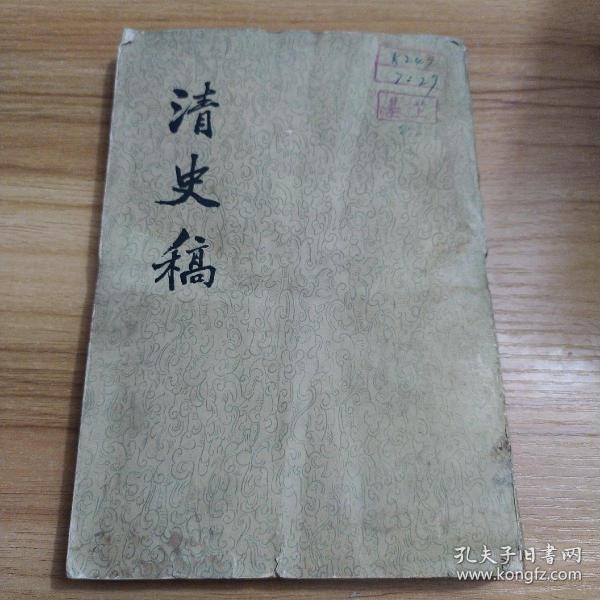 清史稿
K249
7:27
孔夫子旧书网
www.kongfz.com